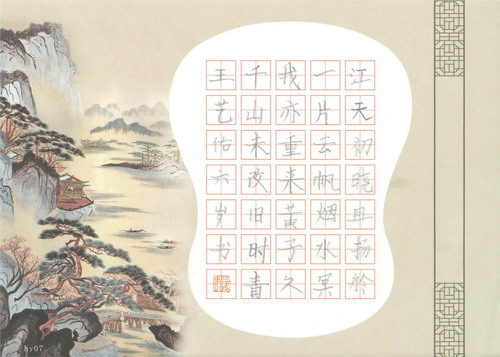 江天初晓且扬舲
一片云帆烟水
我亦重来黄子久
千山未改旧时青
王艺佑六岁书
hy07